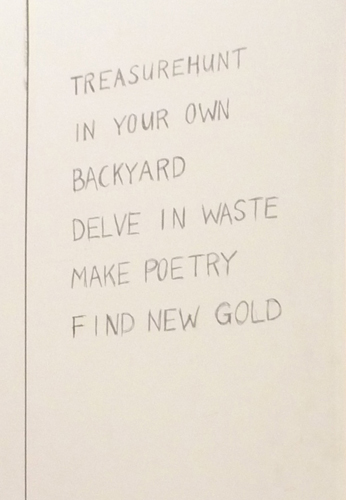 TREASUREHUNT
IN YOUR OWN
BACKYARD
DELVE IN WASTE
MAKE POETRY
FIND NEW GOLD